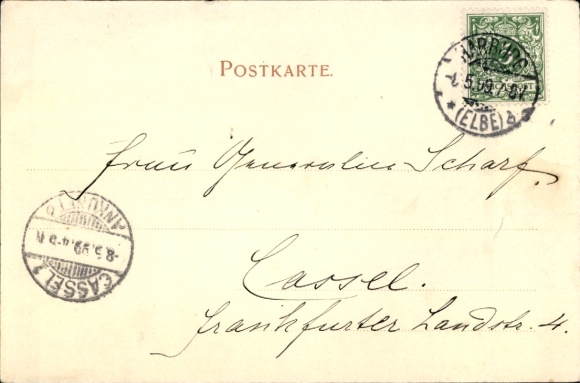 POSTKARTE.
HARBURG
5.99.7-8V.
* (ELBE) *
Frau Generalin Scharf.
Cassel.
Frankfurter Landstr. 4.
ANKUNFT
-8.5.99.4-5 N
CASSEL 1